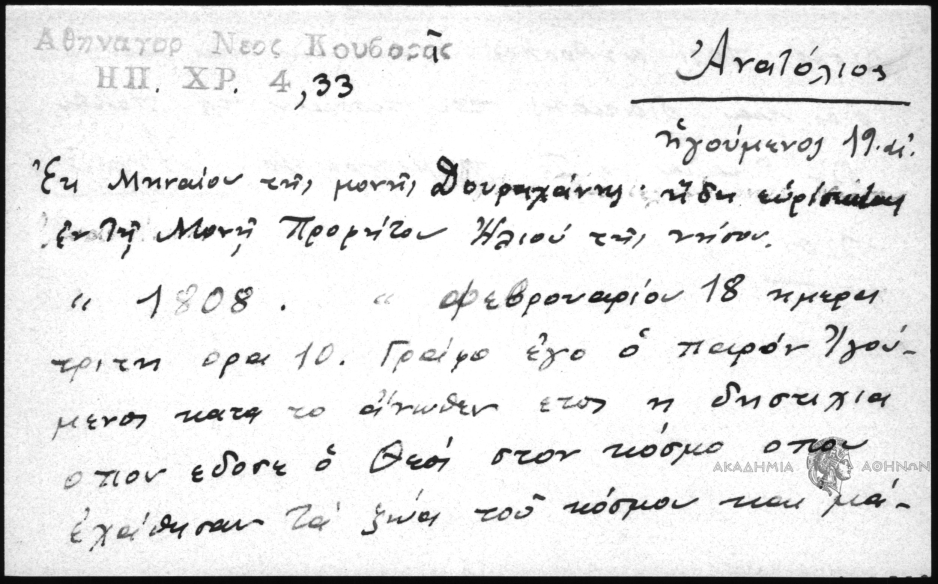 Αθηναγορ Νεος Κουβαρᾶς
ΗΠ. ΧΡ. 4, 33
Ἀνατόλιος
ἡγούμενος 19. αἰ.
Ἐκ Μηναίου τῆς μονῆς Δουραχάνης· ἤδη εὑρίσκεται
ἐν τῇ Μονῇ Προφήτου Ἠλιού τῆς νήσου.
" 1808 . " Φεβρουαρίου 18 ημερα
τριτη ορα 10. Γραίφο ἐγο ὁ παιρόν Ἠγού-
μενος κατα το αἴνωθεν ετος η δηστιχια
οπου εδοσε ὁ Θεός στον κόσμο οπου
ἐχάθησαν τά ζῶα τοῦ κόσμου και μά-
ΑΚΑΔΗΜΙΑ ΑΘΗΝΩΝ